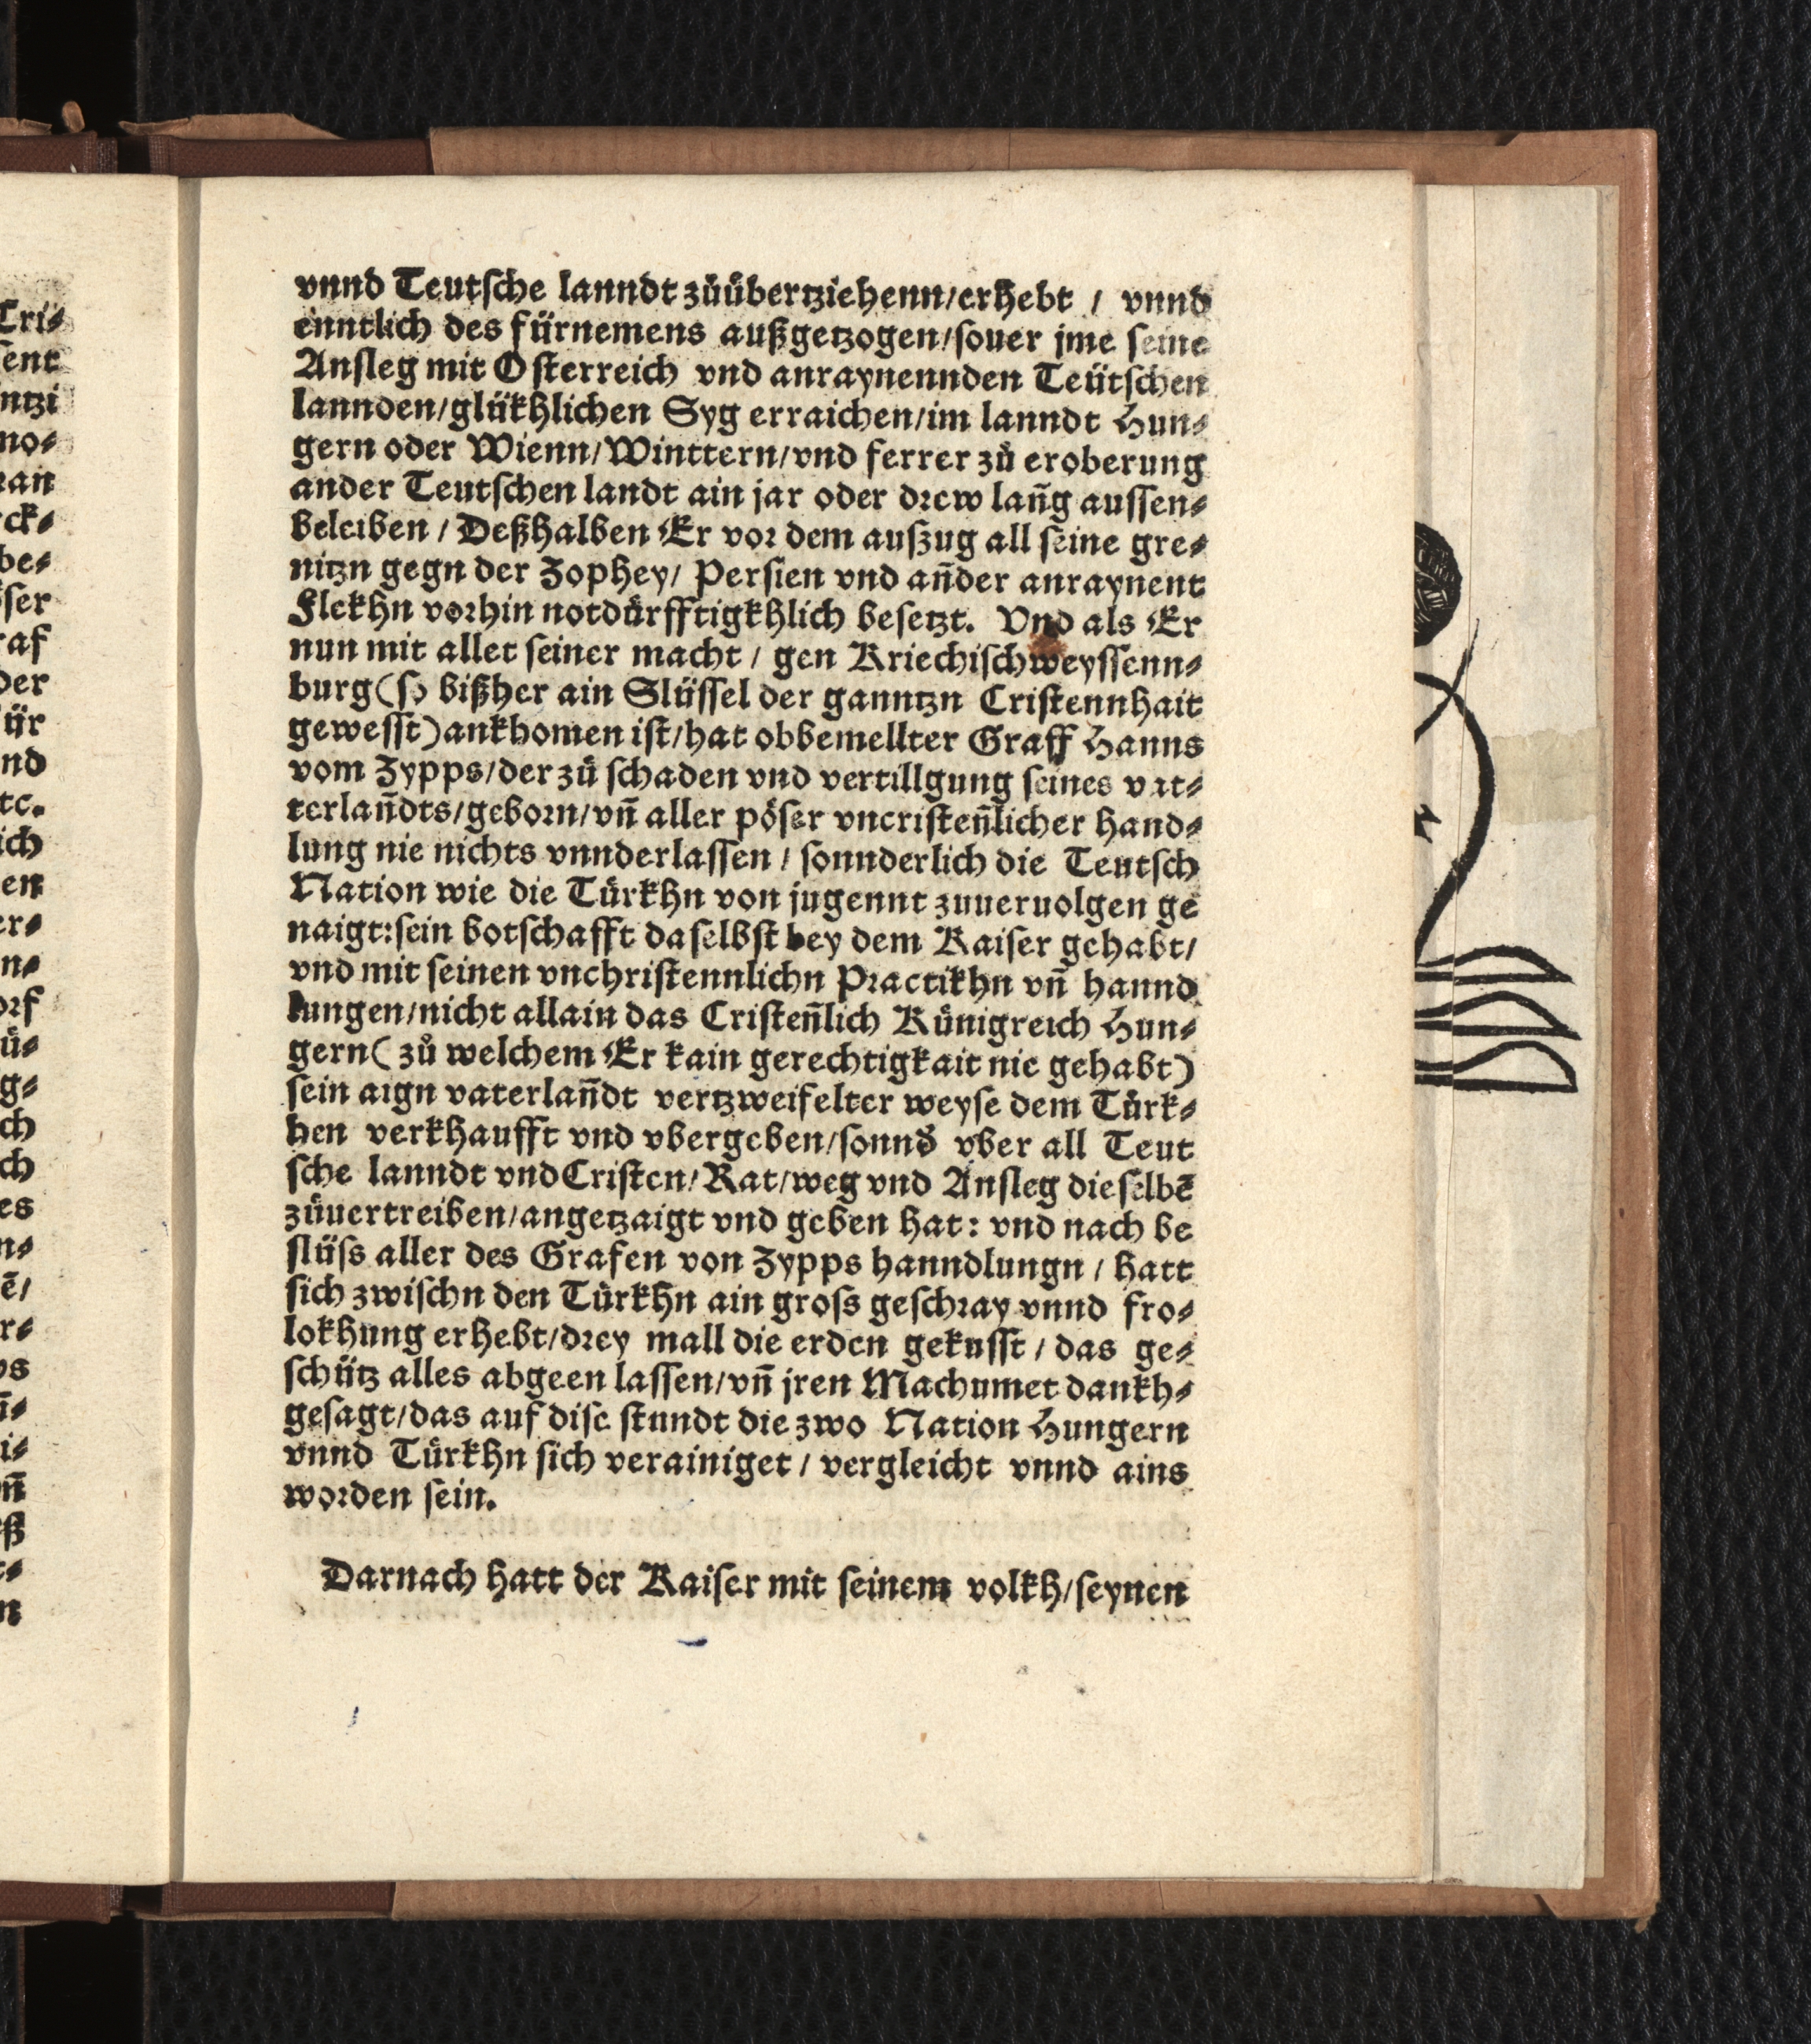 vnnd Teutsche lanndt zůübertziehenn/erhebt / vnnd
enntlich des fürnemens außgetzogen/souer jme seine
Ansleg mit Osterreich vnd anraynennden Teütschen
lannden/glükhlichen Syg erraichen/im lanndt Hun⸗
gern oder Wienn/Winttern/vnd ferrer zů eroberung
ander Teutschen landt ain jar oder drew lañg aussen⸗
beleiben / Deßhalben Er vor dem auszug all seine gre⸗
nitzn gegn der Zophey/ Persien vnd añder anraynent
Flekhn vorhin notdürfftigkhlich besetzt. Vnd als Er
nun mit aller seiner macht / gen Kriechischweyssenn⸗
burg (so bißher ain Slüssel der ganntzn Cristennhait
gewesst) ankhomen ist/hat obbemellter Graff Hanns
vom Zypps/der zů schaden vnd vertillgung seines vat⸗
terlañdts/geborn/vñ aller pöser vncristeñlicher hand⸗
lung nie nichts vnnderlassen / sonnderlich die Teutsch
Nation wie die Türkhn von jugennt zuueruolgen ge
naigt:sein botschafft daselbst bey dem Kaiser gehabt/
vnd mit seinen vnchristennlichn Practikhn vñ hannd
lungen/nicht allain das Cristeñlich Künigreich Hun⸗
gern ( zů welchem Er kain gerechtigkait nie gehabt)
sein aign vaterlañdt vertzweifelter weyse dem Türk⸗
hen verkhaufft vnd vbergeben/sonnd̕ vber all Teut
sche lanndt vnd Cristen/Rat/weg vnd Ansleg dieselbē
zůuertreiben/angetzaigt vnd geben hat: vnd nach be
slüss aller des Grafen von Zypps hanndlungn / hatt
sich zwischn den Türkhn ain gross geschray vnnd fro⸗
lokhung erhebt/drey mall die erden gekusst / das ge⸗
schütz alles abgeen lassen/vñ jren Machumet dankh⸗
gesagt/das auf dise stundt die zwo Nation Hungern
vnnd Türkhn sich verainiget / vergleicht vnnd ains
worden sein.
Darnach hatt der Kaiser mit seinem volkh/seynen